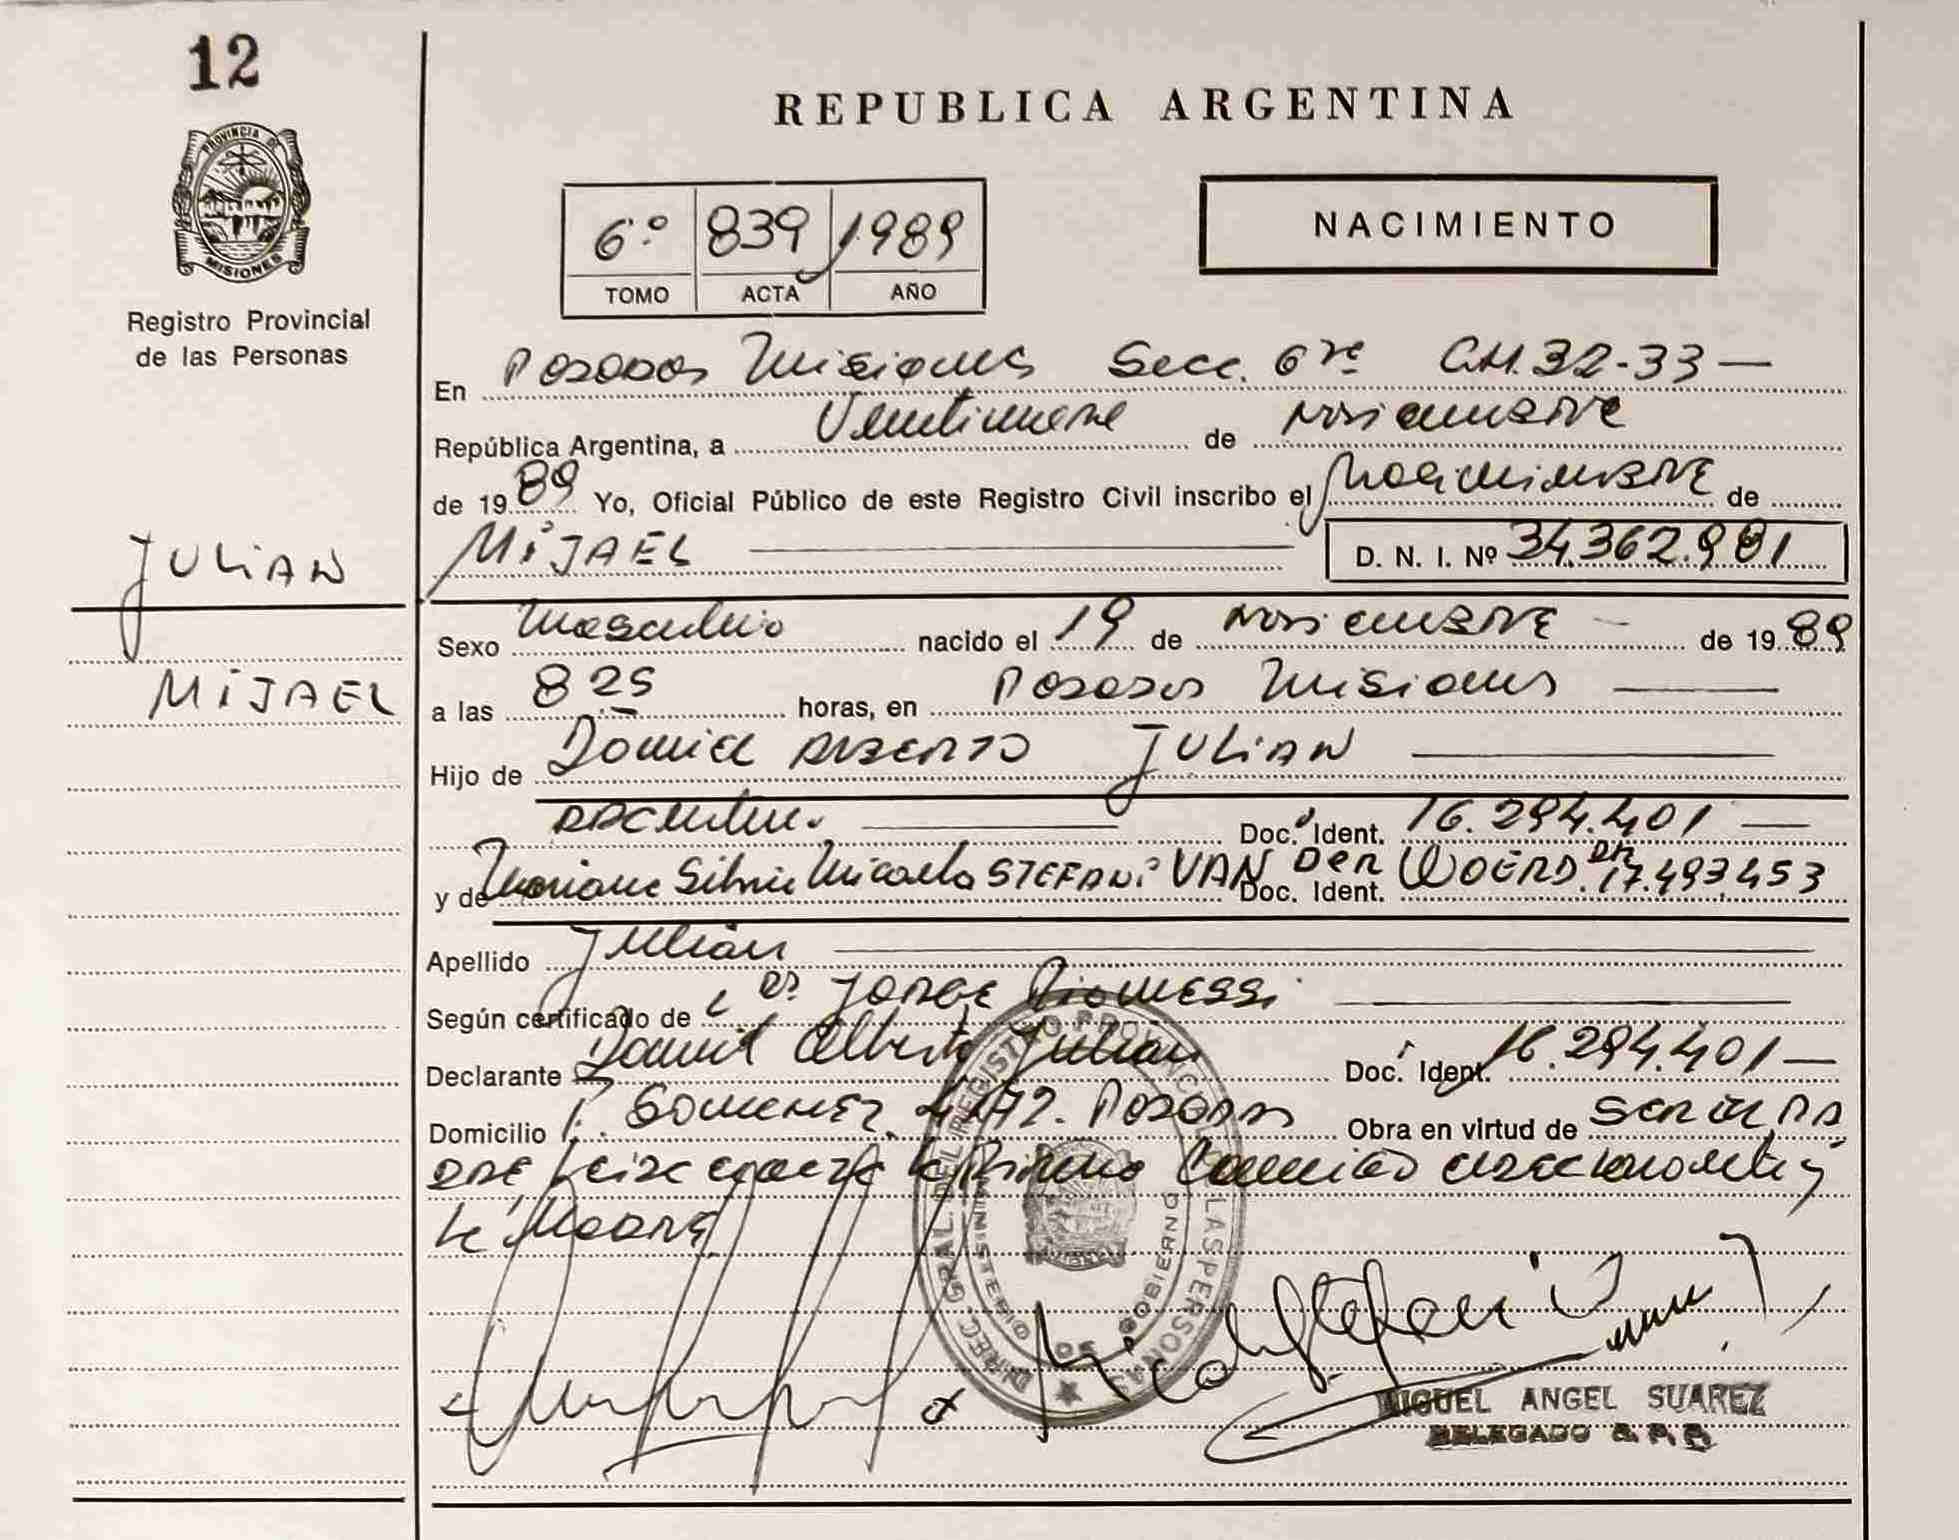 12
PROVINCIA DE
MISIONES
Registro Provincial
de las Personas
JULIAN
MIJAEL
REPUBLICA ARGENTINA
6º 839 1989
TOMO ACTA AÑO
NACIMIENTO
En Posadas Misiones Secc. 6ta 32-33 —
República Argentina, a Veintinueve de Noviembre
de 1989 Yo, Oficial Público de este Registro Civil inscribo el Nacimiento de
MIJAEL
D. N. I. Nº 34.362.981
Sexo Masculino nacido el 19 de Noviembre de 1989
a las 8 25 horas, en Posadas Misiones
Hijo de Daniel Alberto JULIAN
Argentino. Doc. Ident. 16.294.401 —
y de Mariana Silvia Micaela STEFANI VAN DER WOERD. Doc. Ident. 17.493.453
Apellido Julián
Según certificado de Dr. JORGE
Declarante Daniel Alberto Julián Doc. Ident. 16.294.401 —
Domicilio Posadas Obra en virtud de
la Madre
DIREC. GRAL. DEL REGISTRO PROVINCIAL DE LAS PERSONAS
MINISTERIO DE GOBIERNO
MIGUEL ANGEL SUAREZ
DELEGADO